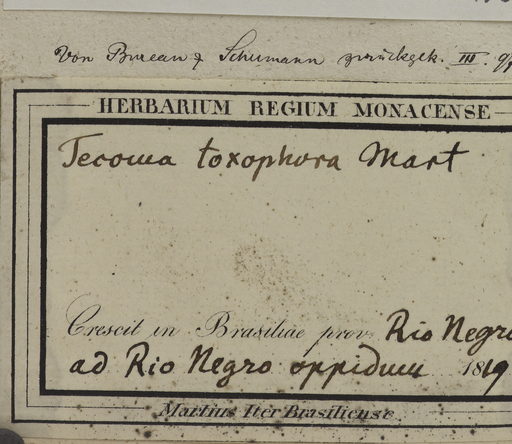 Von Bureau & Schumann zurückgek. III.
HERBARIUM REGIUM MONACENSE
Tecoma toxophora Mart
Crescit in Brasiliae prov. Rio Negro
ad Rio Negro oppidum 1819
Martius Iter Brasiliense